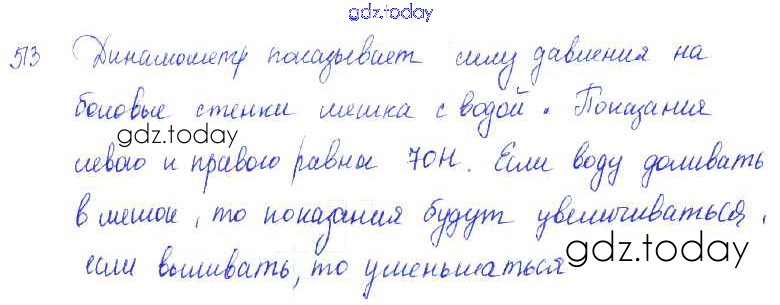 gdz.today
513 Динамометр показывает силу давления на
боковые стенки мешка с водой. Показания
gdz.today
левого и правого равны 70Н. Если воду доливать
в мешок, то показания будут увеличиваться,
gdz.today
если выливать, то уменьшаться